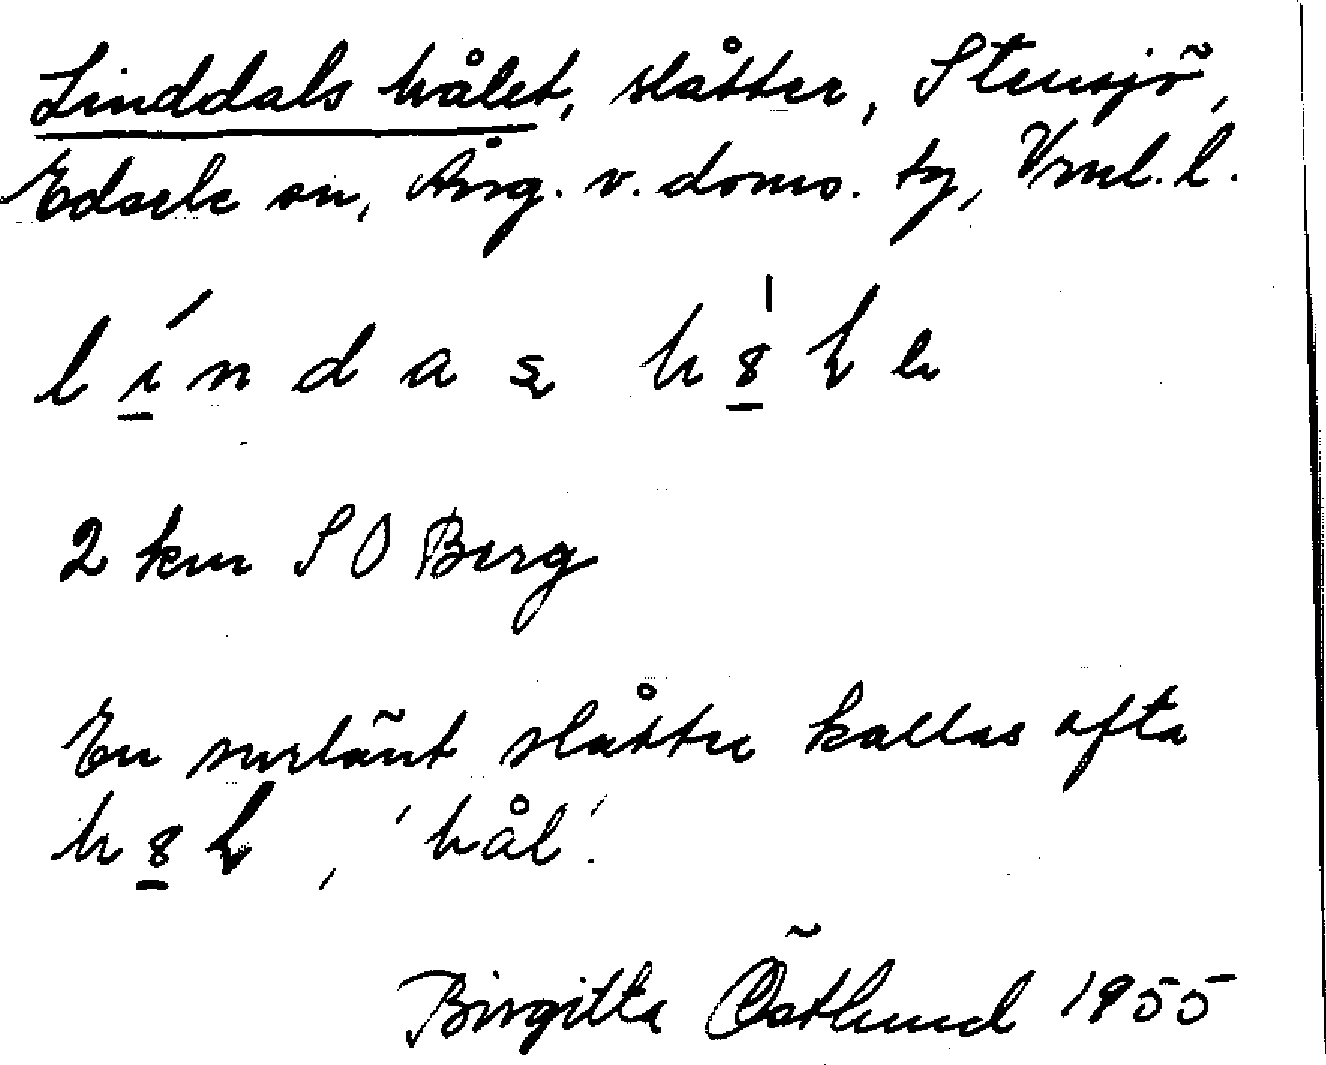 Linddals hålet, slåtter, Stensjö,
Edsele sn, Ång. v. doms. tg, Vnrl. l.
2 km SO Berg
En surlänt slåtter kallas ofta
'hål'.
Birgitta Östlund 1955